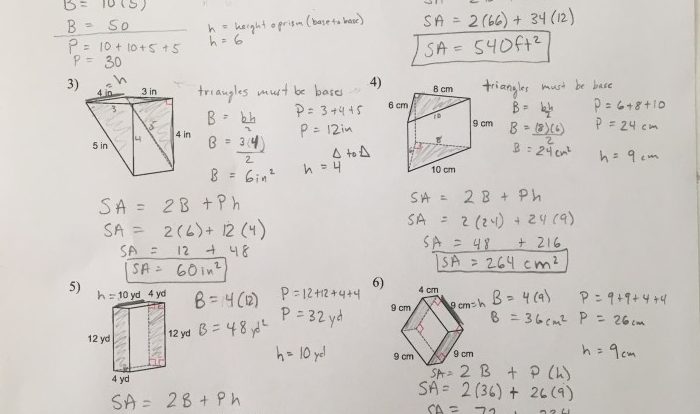 B = 10(5)
B = 50
P = 10 + 10 + 5 + 5
P = 30
h = height of prism (base to base)
h = 6
SA = 2(66) + 34(12)
SA = 540ft²
3)
= h
4 in
3 in
3
5
4
4 in
5 in
triangles must be bases
B = bh/2
B = 3(4)/2
B = 6in²
P = 3+4+5
P = 12in
Δ to Δ
h = 4
SA = 2B + Ph
SA = 2(6) + 12(4)
SA = 12 + 48
SA = 60in²
4)
8 cm
6 cm
10
9 cm
8
6
10 cm
triangles must be base
B = bh/2
B = (8)(6)/2
B = 24cm²
P = 6+8+10
P = 24 cm
h = 9 cm
SA = 2B + Ph
SA = 2(24) + 24(9)
SA = 48 + 216
SA = 264 cm²
5)
h = 10 yd
4 yd
12 yd
12 yd
4 yd
B = 4(12)
B = 48 yd²
P = 12+12+4+4
P = 32 yd
h = 10 yd
SA = 2B + Ph
6)
4 cm
9 cm
9 cm = h
9 cm
9 cm
B = 4(9)
B = 36cm²
P = 9+9+4+4
P = 26cm
h = 9cm
SA = 2B + P(h)
SA = 2(36) + 26(9)
SA = 72 + 234